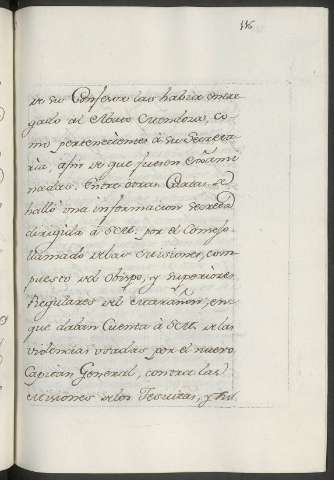 116
de su Confesor las habia entre
gado al Nuevo Mendoza, co
mo pertenecientes à su Secreta
ria, afin de que fuesen exami
nadas. Entre otras Cartas se
halló una informacion secreta
dirigida à S.M. por el Consejo
llamado de las Misiones, com
puesto del Obispo, y Superiores
Regulares del Marañon, en
que daban Cuenta à S.M. de las
violencias usadas por el nuevo
Capitan General, contra las
Misiones de los Jesuitas, y